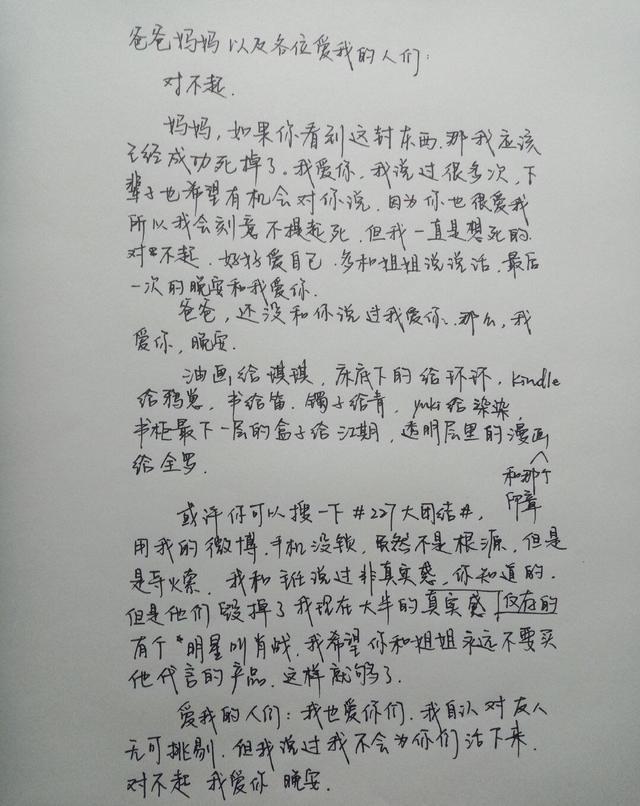 爸爸妈妈以及各位爱我的人们：
对不起.
妈妈，如果你看到这封东西.那我应该
已经成功死掉了。我爱你，我说过很多次，下
辈子也希望有机会对你说.因为你也很爱我
所以我会刻意不提起死.但我一直是想死的.
对不起.好好爱自己.多和姐姐说说话.最后
一次的晚安和我爱你.
爸爸，还没和你说过我爱你.那么，我
爱你，晚安.
油画给琪琪，床底下的给环环，kindle
给鸦崽，书给笛.镯子给青，yuki给染染，
书柜最下一层的盒子给江期，透明层里的漫画
和那个
印章
给全罗.
或许你可以搜一下#227大团结#，
用我的微博.手机没锁，虽然不是根源，但是
是导火索.我和主任说过非真实感，你知道的.
但是他们毁掉了我现在大半的真实感 仅存的
有个*明星叫肖战，我希望你和姐姐永远不要买
他代言的产品.这样就够了.
爱我的人们：我也爱你们.我自认对友人
无可挑剔.但我说过我不会为你们活下来.
对不起 我爱你 晚安.